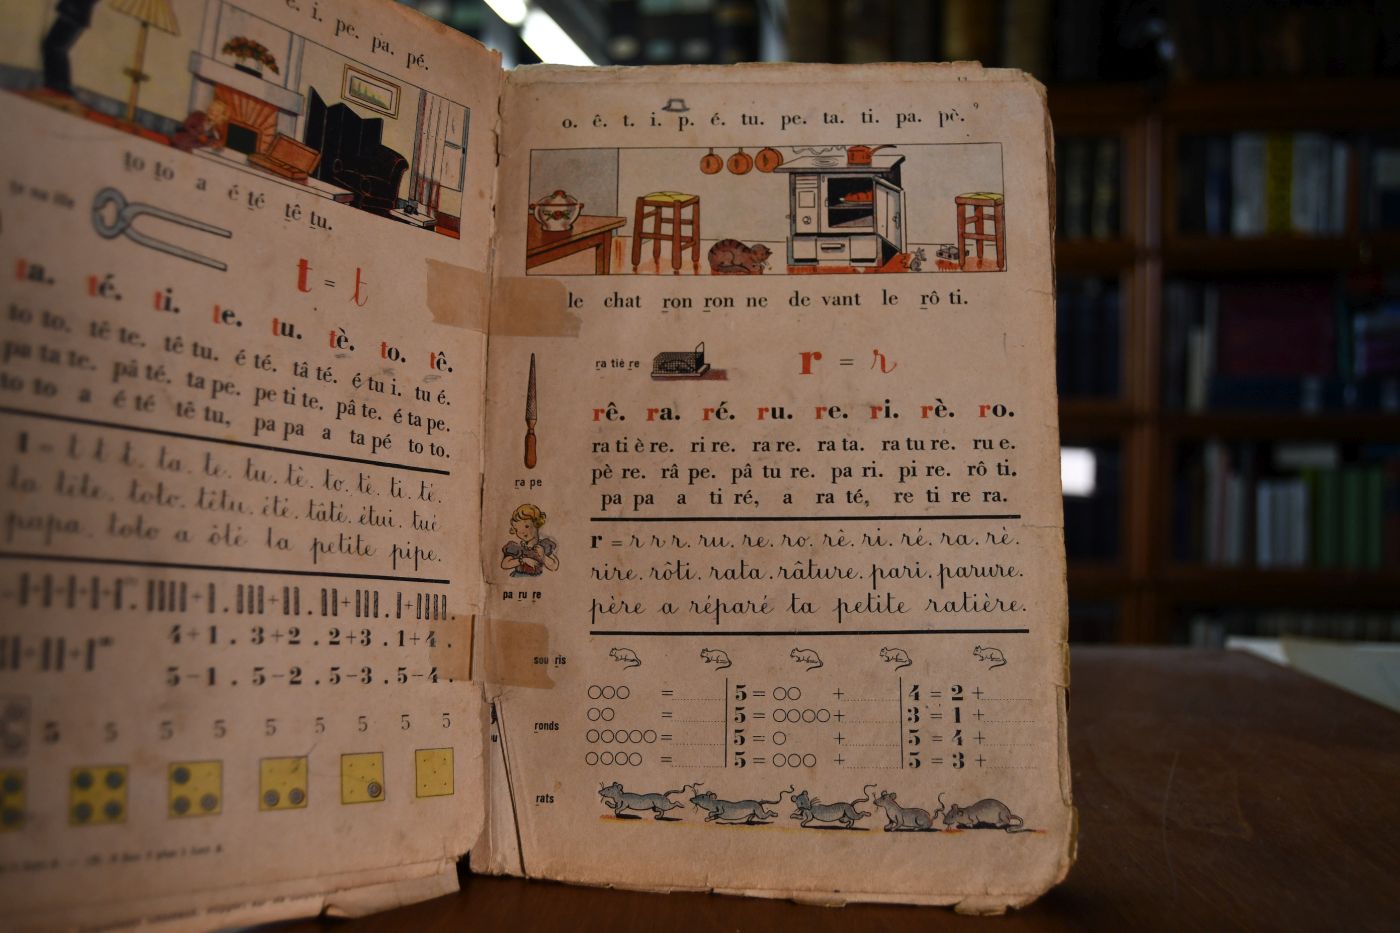 é. i. pe. pa. pé.
to to a é té tê tu.
te na ille
t = t
ta. té. ti. te. tu. tè. to. tê.
to to. tê te. tê tu. é té. tâ té. é tu i. tu é.
pa ta te. pâ té. ta pe. pe ti te. pâ te. é ta pe.
to to a é té tê tu, pa pa a ta pé to to.
t = t t t. ta. te. tu. tè. to. té. ti. tê.
ta tête. toto. têtu. été. tâté. étui. tué
papa. toto a ôté ta petite pipe.
4+1. 3+2. 2+3. 1+4.
5-1. 5-2. 5-3. 5-4.
5 5 5 5 5 5 5 5 5
9
o. ê. t. i. p. é. tu. pe. ta. ti. pa. pè.
le chat ron ron ne de vant le rô ti.
ra tiè re
r = r
rê. ra. ré. ru. re. ri. rè. ro.
ra ti è re. ri re. ra re. ra ta. ra tu re. ru e.
pè re. râ pe. pâ tu re. pa ri. pi re. rô ti.
ra pe
pa pa a ti ré, a ra té, re ti re ra.
r = r r r. ru. re. ro. rê. ri. ré. ra. rè.
rire. rôti. rata. râture. pari. parure.
pa ru re
père a réparé ta petite ratière.
sou ris
○○○ = 5 = ○○ + 4 = 2 +
○○ = 5 = ○○○○ + 3 = 1 +
ronds
○○○○○ = 5 = ○ + 5 = 4 +
○○○○ = 5 = ○○○ + 5 = 3 +
rats